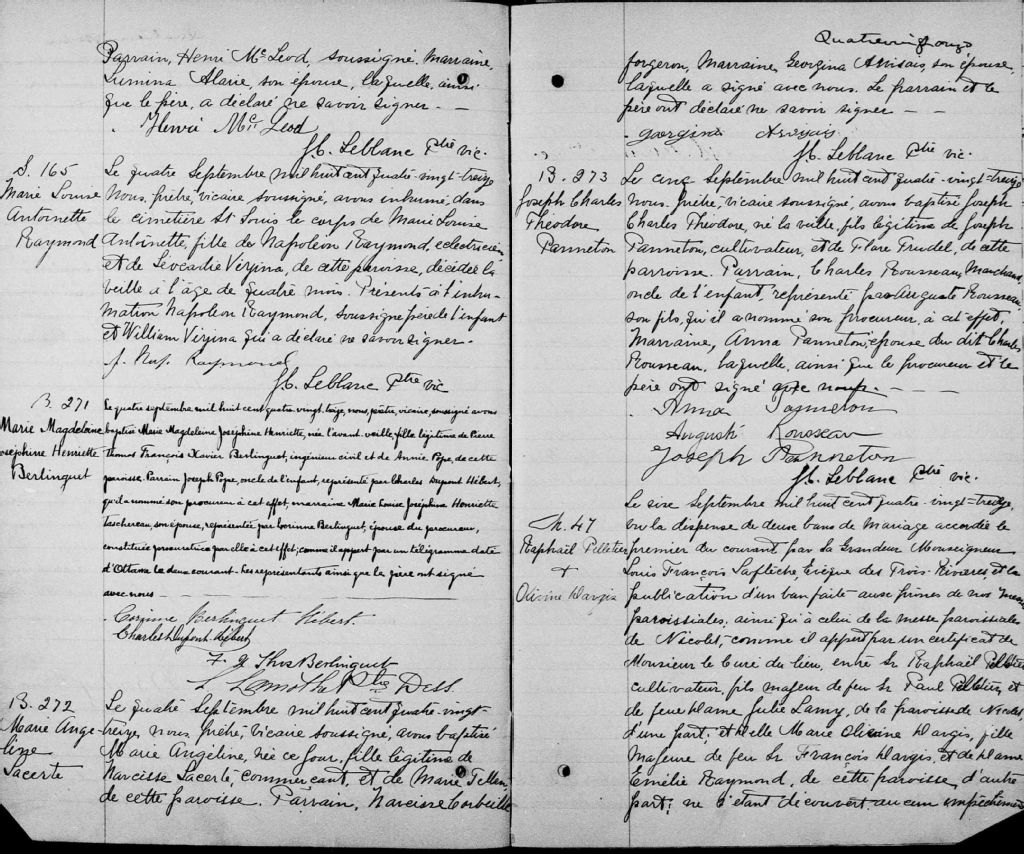 Parrain, Henri Mc Leod, soussigné. Marraine,
Lumina Alarie, son épouse, laquelle, ainsi
que le père, a déclaré ne savoir signer. —
Henri Mc Leod
J.C. Leblanc Ptre vic.
S. 165
Marie Louise
Antoinette
Raymond
Le quatre Septembre mil huit cent quatre-vingt-treize
Nous, prêtre, vicaire soussigné, avons inhumé, dans
le cimetière St Louis le corps de Marie Louise
Antoinette, fille de Napoléon Raymond, électricien
et de Léocadie Virgina, de cette paroisse, décédée la
veille à l'âge de quatre mois. Présents à l'inhu-
mation Napoléon Raymond, soussigné père de l'enfant
et William Virgina qui a déclaré ne savoir signer.
J. Nap. Raymond
J.C. Leblanc Ptre vic
B. 271
Marie Magdeleine
Joséphine Henriette
Berlinguet
Le quatre septembre mil huit cent quatre-vingt-treize, nous, prêtre, vicaire, soussigné avons
baptisé Marie Magdeleine Joséphine Henriette, née l'avant-veille, fille légitime de Pierre
Thomas François Xavier Berlinguet, ingénieur civil et de Annie Pope, de cette
paroisse. Parrain Joseph Pope, oncle de l'enfant, représenté par Charles Dupont Hébert,
qu'il a nommé son procureur à cet effet, marraine Marie Louise Joséphine Henriette
Taschereau, son épouse, représentée par Corinne Berlinguet, épouse du procureur,
constituée procuratrice par elle à cet effet; comme il appert par un télégramme daté
d'Ottawa le deux courant. Les représentants ainsi que le père ont signé
avec nous
Corinne Berlinguet Hébert.
Charles Dupont Hébert
F. X. Thos Berlinguet
L Lamothe Ptre Dess.
B. 272
Marie Ange-
line
Lacerte
Le quatre Septembre mil huit cent quatre-vingt-
treize, nous, prêtre, vicaire soussigné, avons baptisé
Marie Angéline, née ce jour, fille légitime de
Narcisse Lacerte, commerçant, et de Marie
de cette paroisse. Parrain, Narcisse Corbeille
Quatrevingt onze
forgeron, Marraine, Georgina Arvisais, son épouse,
laquelle a signé avec nous. Le parrain et le
père ont déclaré ne savoir signer —
Georgina Arvisais
J.C. Leblanc Ptre vic.
B. 273
Joseph Charles
Théodore
Panneton
Le cinq Septembre mil huit cent quatre-vingt-treize
Nous, prêtre, vicaire soussigné, avons baptisé Joseph
Charles Théodore, né la veille, fils légitime de Joseph
Panneton, cultivateur, et de Flore Trudel, de cette
parroisse. Parrain, Charles Rousseau, Marchand,
oncle de l'enfant, représenté par Auguste Rousseau,
son fils, qu'il a nommé son procureur, à cet effet,
Marraine, Anna Panneton, épouse du dit Charles
Rousseau, laquelle, ainsi que le procureur et le
père ont signé avec nous. — —
Anna Panneton
Auguste Rousseau
Joseph Panneton
J.C. Leblanc Ptre vic.
M. 47
Raphaël Pelletier
+
Olivine Dargis
Le six Septembre mil huit cent quatre-vingt-treize
Vu la dispense de deux bans de Mariage accordée le
premier du courant par Sa Grandeur Monseigneur
Louis François Laflèche, Evêque des Trois-Rivières, et la
publication d'un ban faite aux prônes de nos messes
paroissiales, ainsi qu'à celui de la messe paroissiale
de Nicolet, comme il appert par un certificat de
Monsieur le Curé du lieu, entre Sr Raphaël Pelletier
cultivateur, fils majeur de feu Sr Paul Pelletier, et
de feue Dame Julie Lamy, de la paroisse de Nicolet,
d'une part; et Delle Marie Olivine Dargis, fille
Majeure de feu Sr François Dargis, et de Dame
Emélie Raymond, de cette paroisse, d'autre
part; ne s'étant découvert aucun empêchement